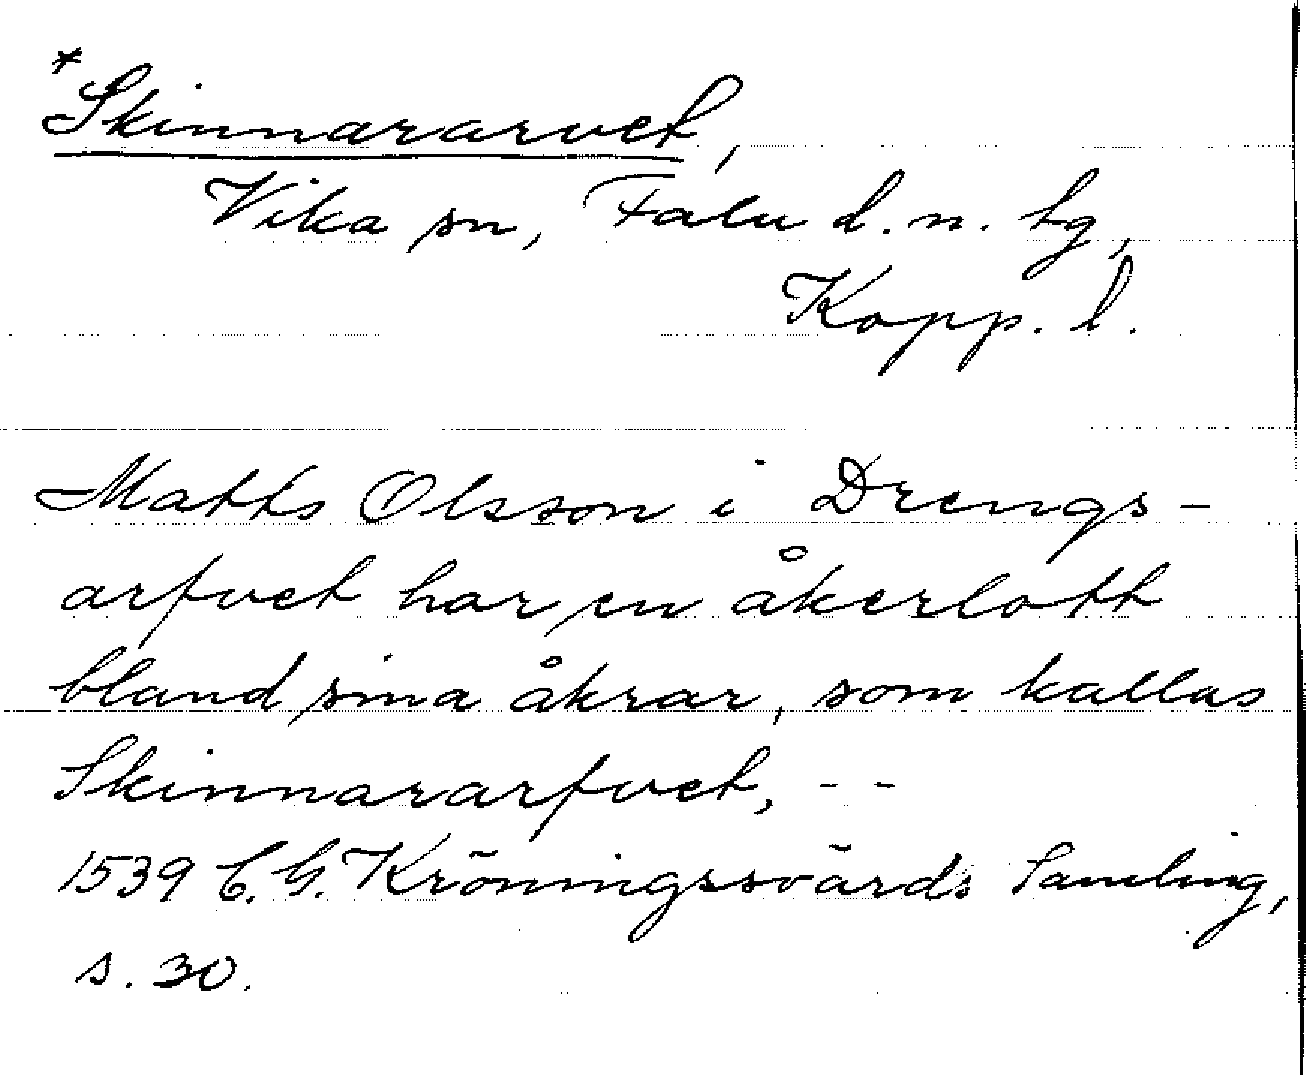 *Skinnararvet,
Vika sn, Falu d. n. tg,
Kopp. l.
Matts Olsson i Drengs-
arfvet har en åkerlott
bland sina åkrar, som kallas
Skinnararfvet, - -
1539 C. G. Kröningssvärds Samling,
s. 30.